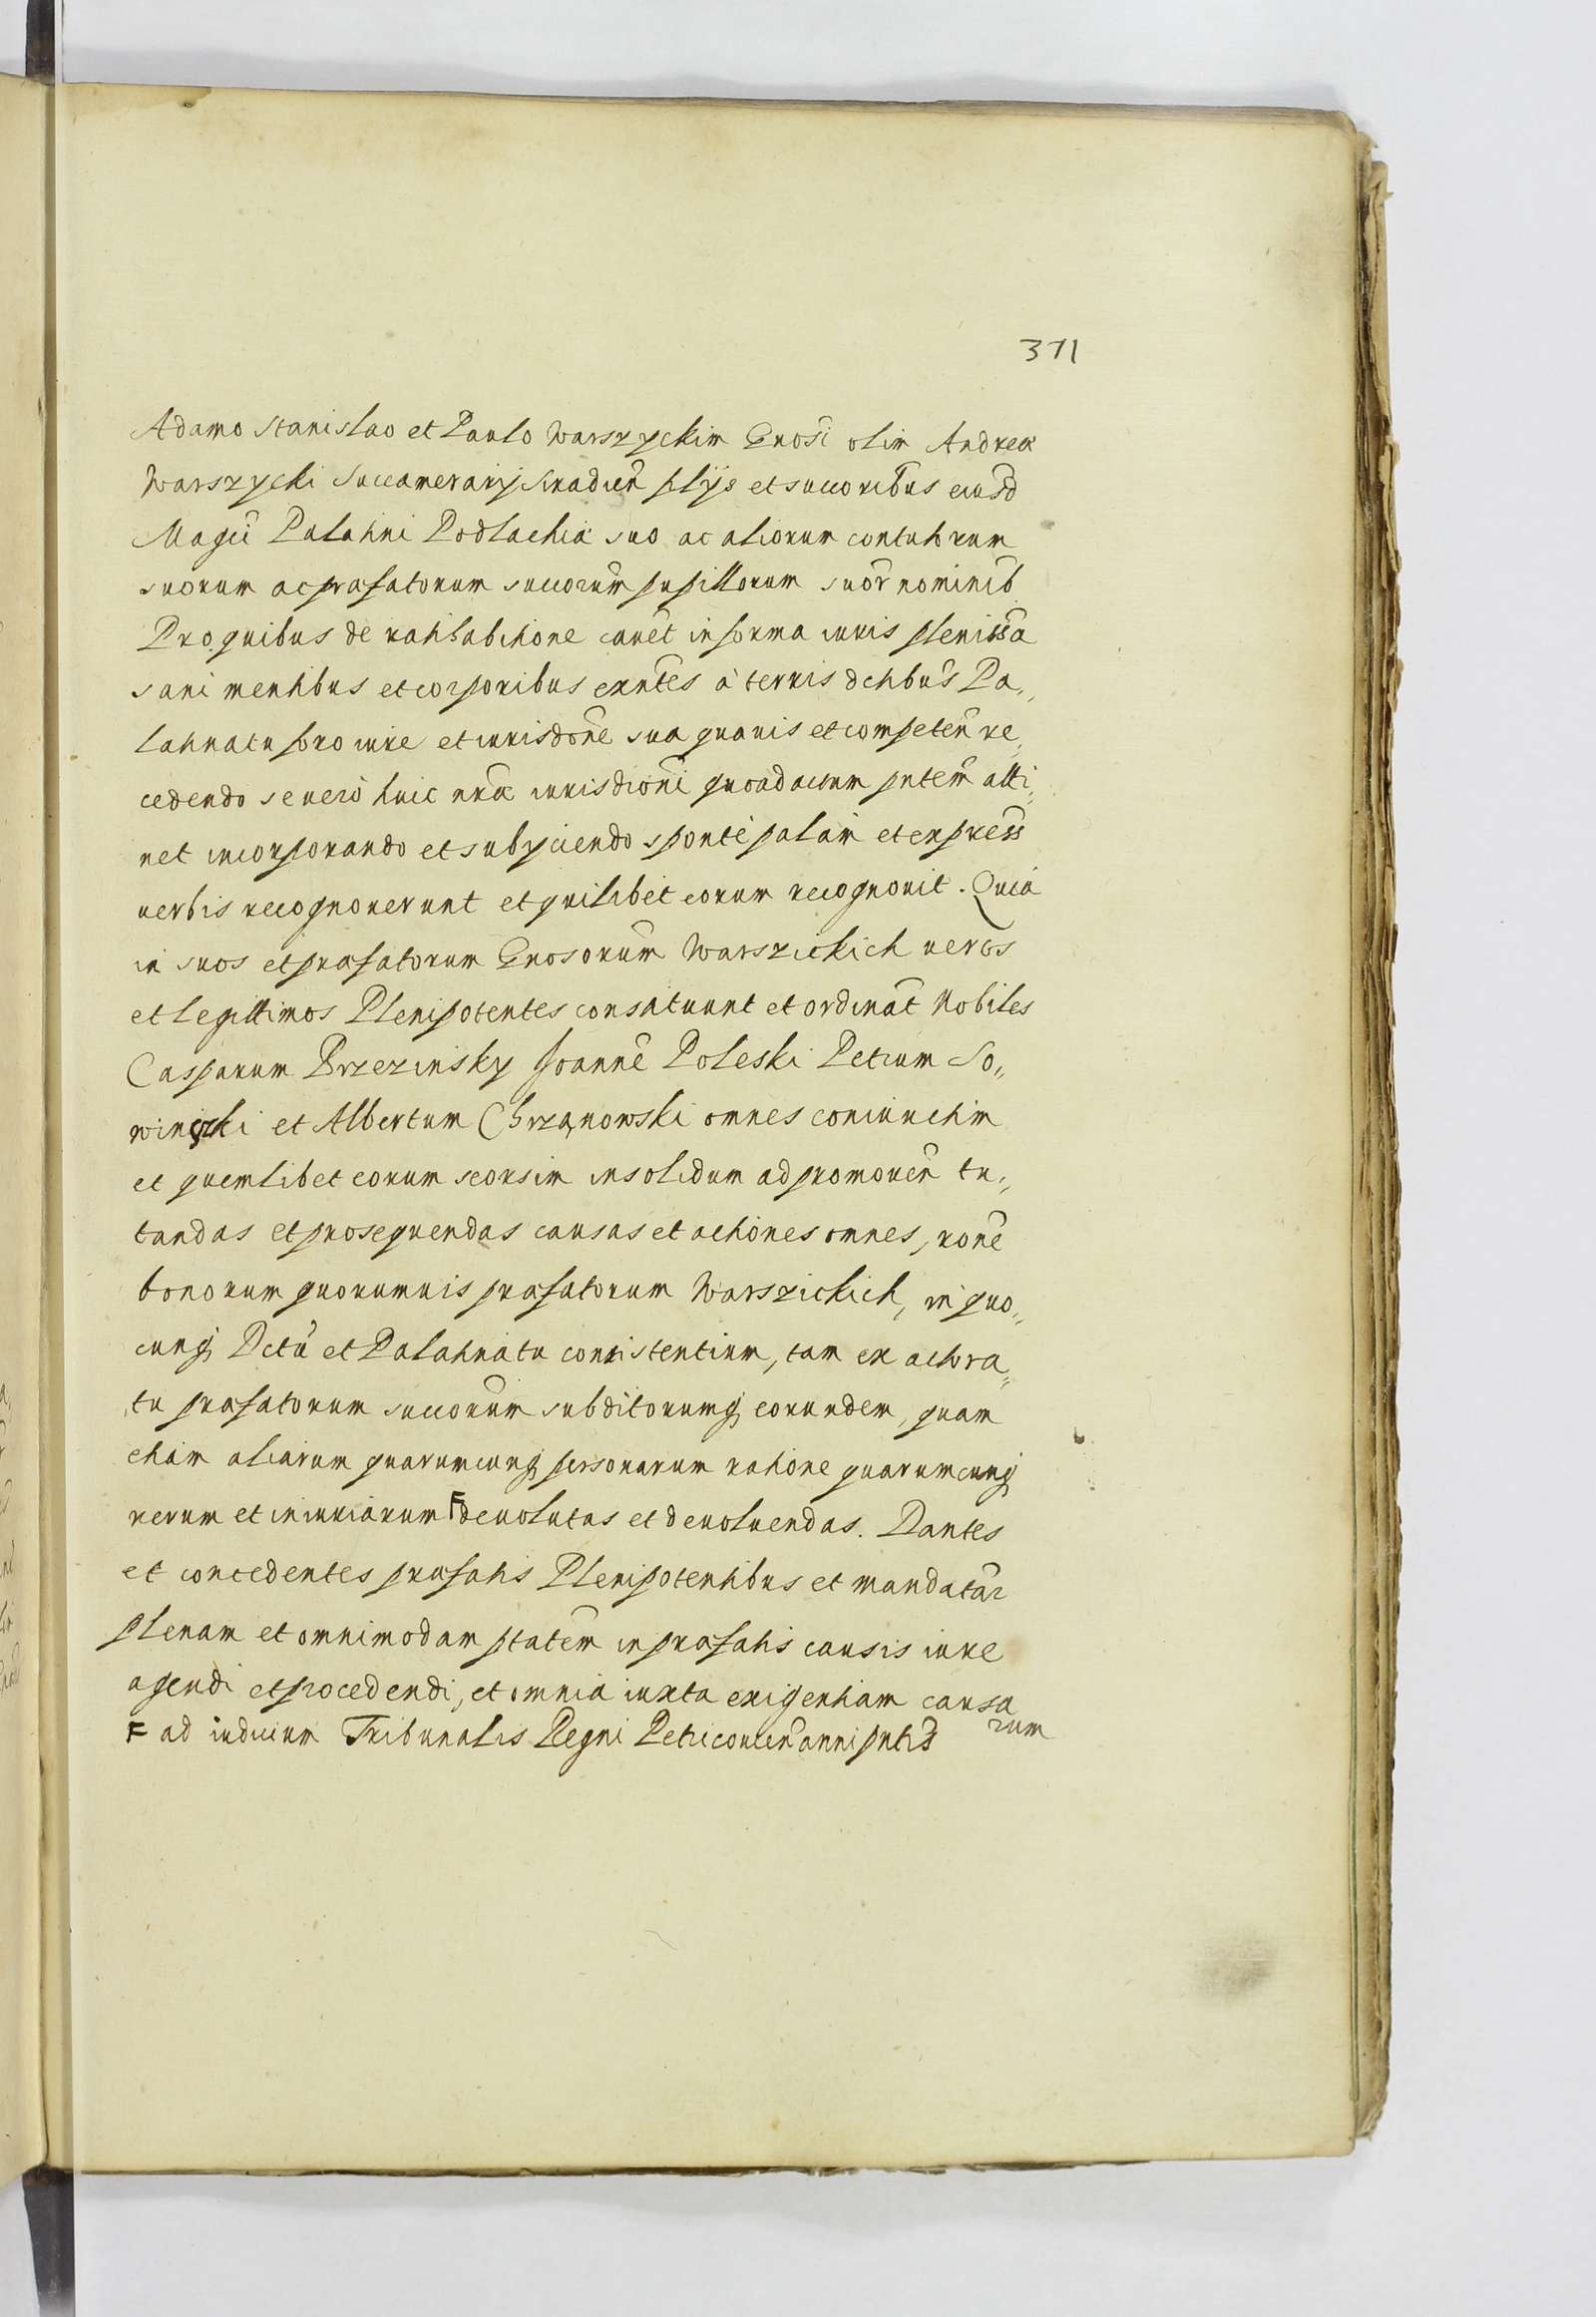 371
Adamo Stanislao et Paulo Warszyckim Gnosi olim Andreæ
Warszycki Succamerarij Siradien filijs et succoribus eiusd
Magci Palatini Podlachiæ suo ac aliorum contutorum
suorum ac præfatorum succorum pupillorum suor nominib
Pro quibus de ratihabitione cauet in forma iuris plenissa
sani mentibus et corporibus exntes à terris dctibus Pa„
latinatu foro iure et iurisdone sua quauis et competen re„
cedendo se uero huic nræ iurisdicioni quoad actum pntem atti„
net incorporando et subijciendo sponte palam et express
uerbis recognouerunt et quilibet eorum recognouit. Quia
in suos et præfatorum Gnosorum Warszickich ueros
et legittimos Plenipotentes constituunt et ordinat Nobiles
Casparum Brzezinsky Joanne Poleski Petrum So„
winski et Albertum Chrzanowski omnes coniunctim
et quemlibet eorum seorsim insolidum ad promouen tu„
tandas et prosequendas causas et actiones omnes, rone
bonorum quorumuis præfatorum Warszickich, in quo„
cunq Dctu et Palatinatu consistentium, tam ex actora„
tu præfatorum succorum subditorumq eorundem, quam
etiam aliarum quarumcunq personarum ratione quarumcunq
rerum et iniuriarum F deuolutas et deuoluendas. Dantes
et concedentes præfatis Plenipotentibus et mandatar
plenam et omnimodam ptatem in præfatis causis iure
agendi et procedendi, et omnia iuxta exigentiam causa
rum
F ad iudicium Tribunalis Regni Petricouien anni pntis